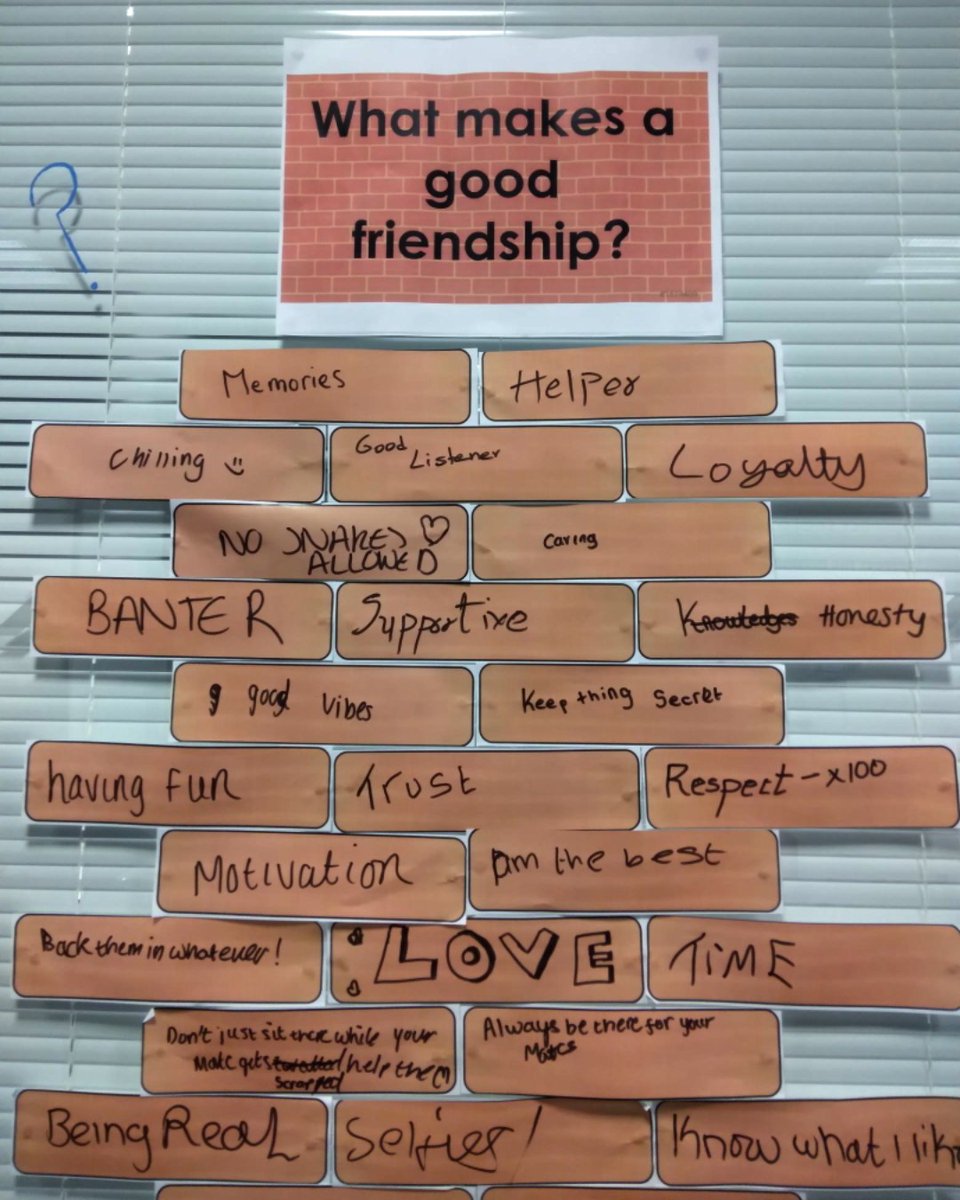 What makes a
good
friendship?
Memories
Helper
Chilling
Good
Listener
Loyalty
NO SNAKES
ALLOWED
Caring
BANTER
Supportive
Knowledges Honesty
good Vibes
Keep thing Secret
having fun
Trust
Respect - x100
Motivation
am the best
Back them in whatever!
LOVE
TIME
Don't just sit there while your
Mate gets help them
Scrapped
Always be there for your
Mates
Being Real
Selfies!
Know what I lik